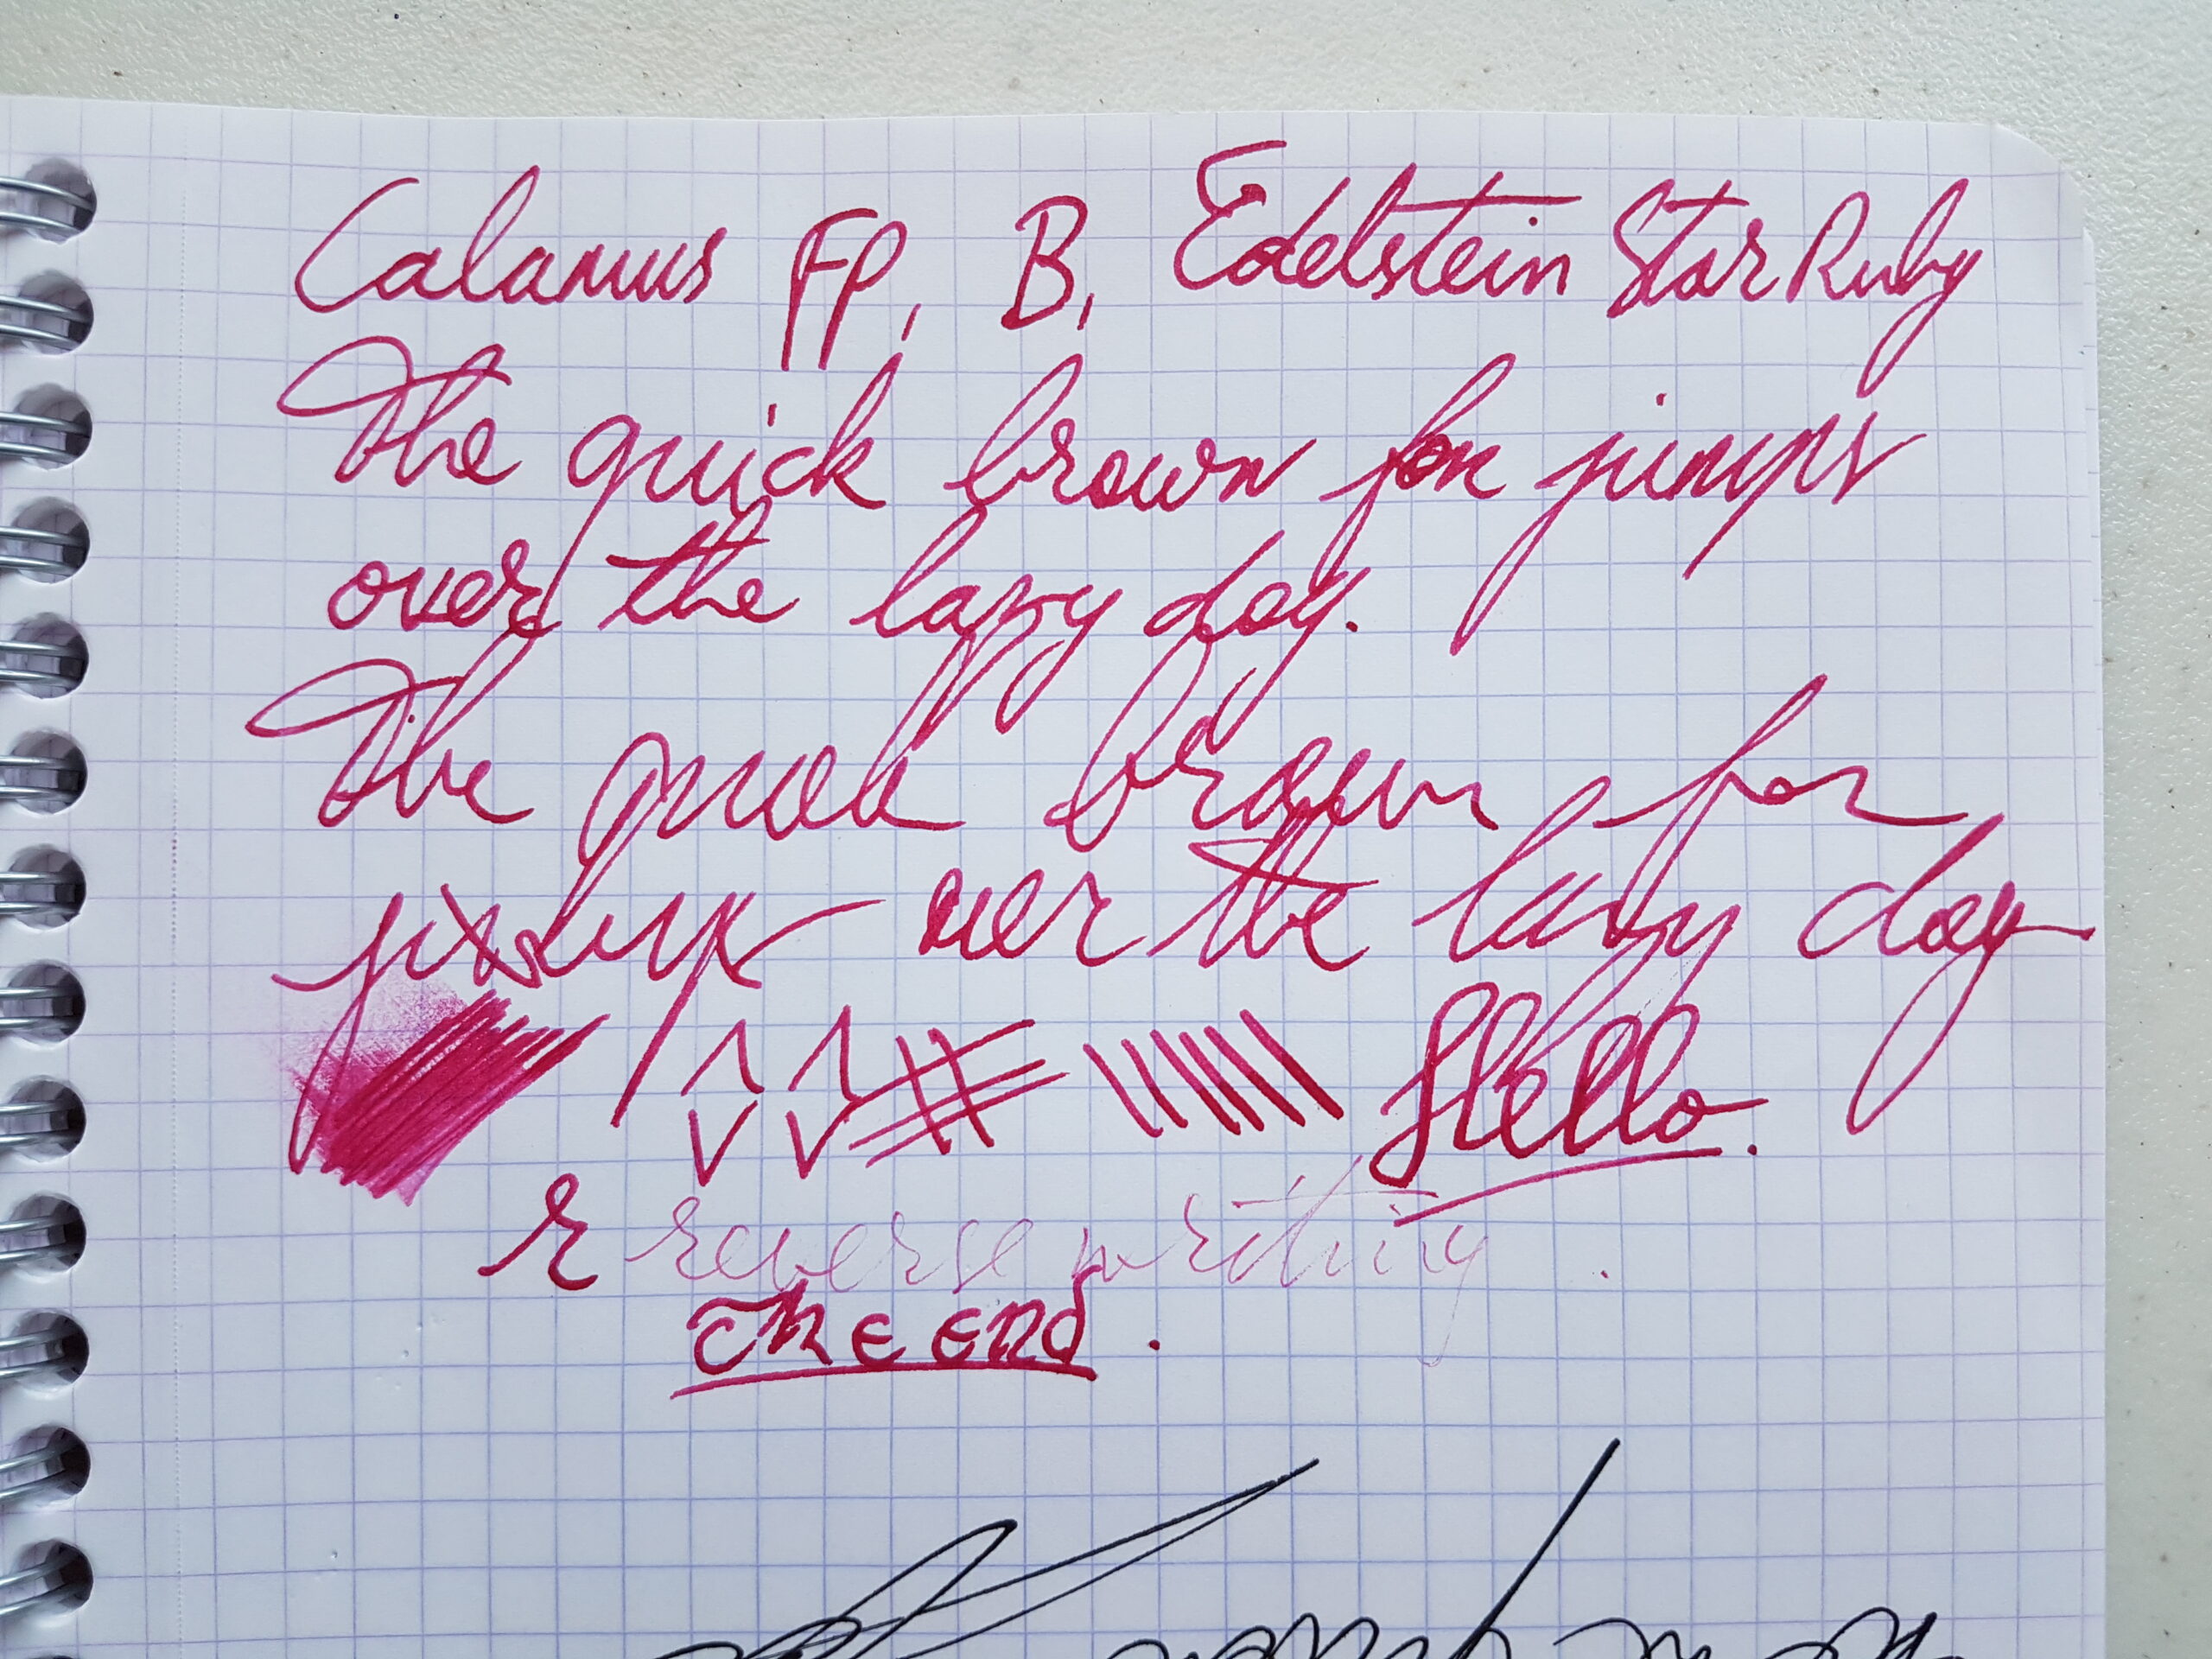 Calamus FP, B, Edelstein Star Ruby
The quick brown fox jumps
over the lazy dog.
The quick brown fox
jumps over the lazy dog
Hello.
r reverse writing.
The end.